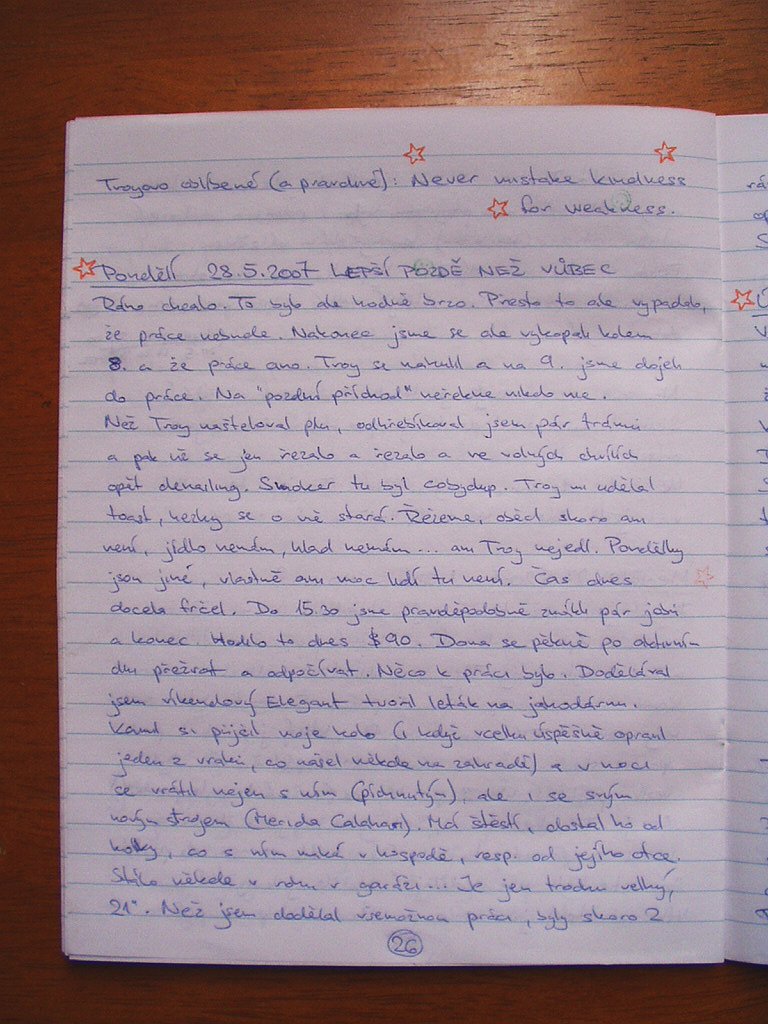 Troyovo oblíbené (a pravdivé): Never mistake kindness
for weakness.
Pondělí 28.5.2007 LEPŠÍ POZDĚ NEŽ VŮBEC
Ráno chcalo. To bylo ale hodně brzo. Přesto to ale vypadalo,
že práce nebude. Nakonec jsme se ale vykopali kolem
8. a že práce ano. Troy se nakrkl a na 9. jsme dojeli
do práce. Na "pozdní příchod" neřekne nikdo nic.
Než Troy našteloval pilu, odhřebíkoval jsem pár trámů
a pak už se jen řezalo a řezalo a ve volných chvílích
opět denailing. Smoker tu byl cobydup. Troy mi udělal
toast, hezky se o mě stará. Řežeme, oběd skoro ani
není, jídlo nemám, hlad nemám... ani Troy nejedl. Pondělky
jsou jiné, vlastně ani moc lidí tu není. Čas dnes
docela frčel. Do 15.30 jsme pravděpodobně zmákli pár jobů
a konec. Hodilo to dnes $90. Doma se pěkně po aktivním
dnu přežrat a odpočívat. Něco k práci bylo. Dodělával
jsem víkendový Elegant tvořil leták na jahodárnu.
Kamil si půjčil moje kolo (i když vcelku úspěšně opravil
jeden z vraků, co našel někde na zahradě) a v noci
se vrátil nejen s ním (píchnutým), ale i se svým
novým strojem (Merida Calahari). Má štěstí, dostal ho od
holky, co s ním maká v hospodě, resp. od jejího otce.
Stálo někde v rohu v garáži... Je jen trochu velký,
21". Než jsem dodělal všemožnou práci, byly skoro 2
26